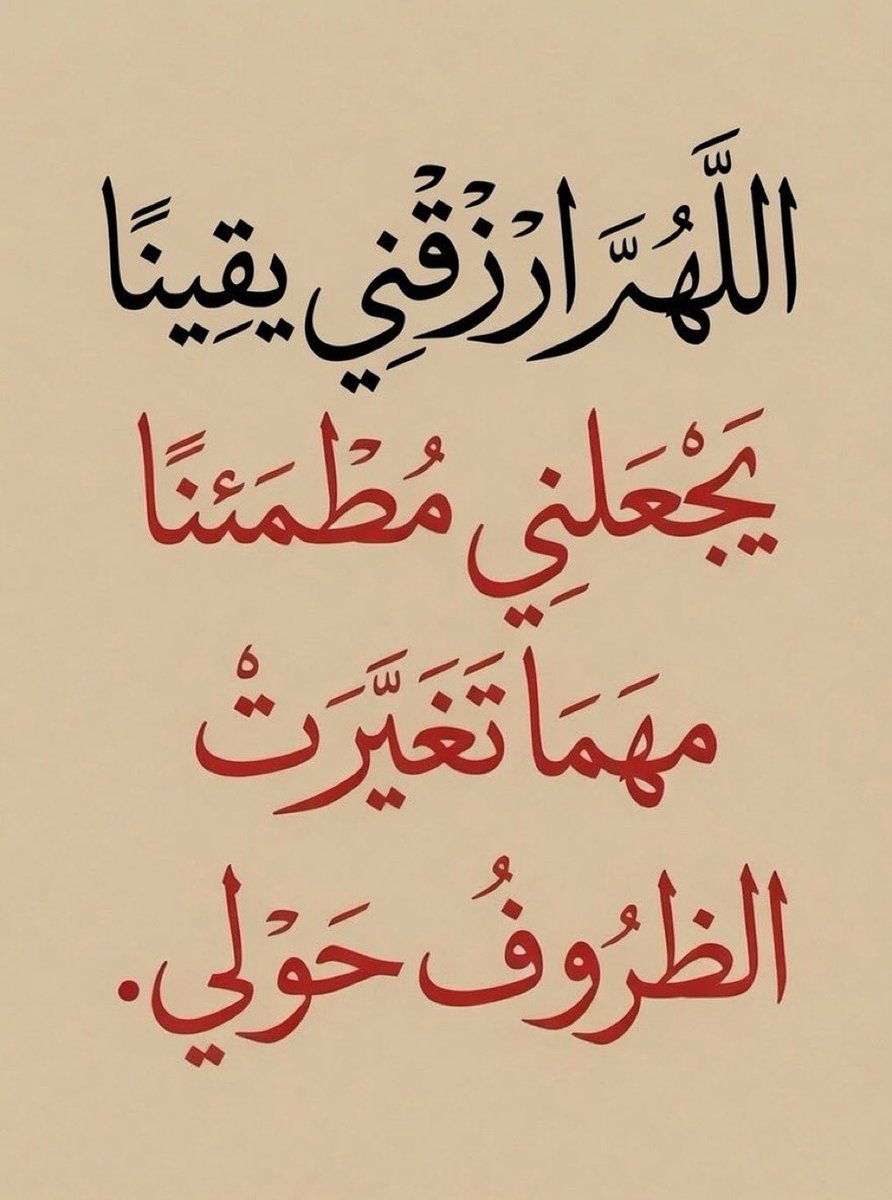 اللَّهُمَّ ارْزُقْنِي يَقِينًا
يَجْعَلنِي مُطْمَئنًا
مهمَا تَغَيَّرَتْ
الظرُوفُ حَوْلي.